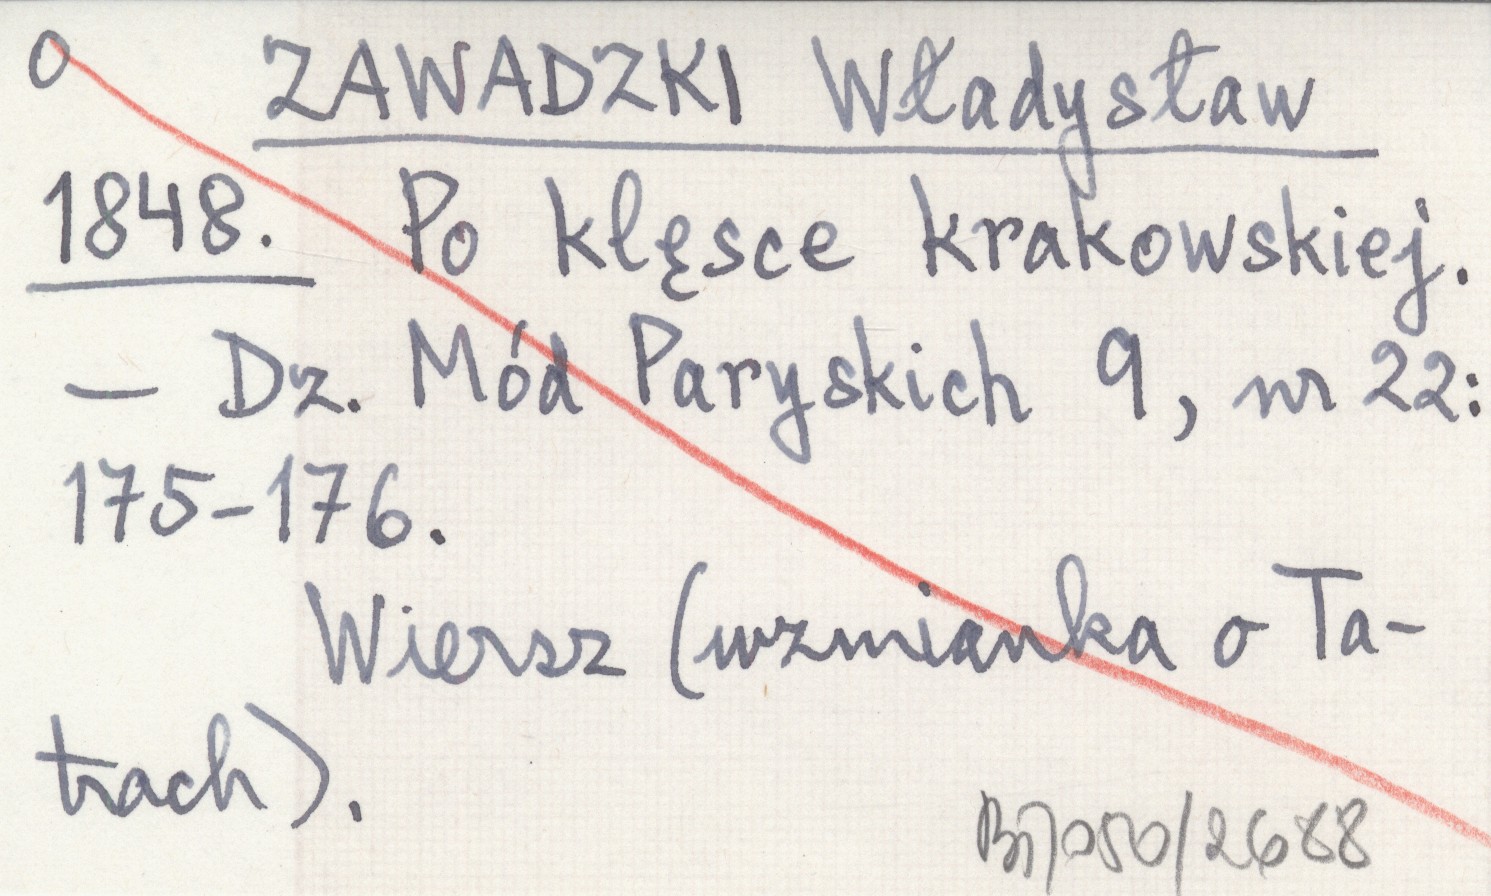 o ZAWADZKI Władysław
1848. Po klęsce krakowskiej.
— Dz. Mód Paryskich 9, nr 22:
175-176.
Wiersz (wzmianka o Ta-
trach).
/2688